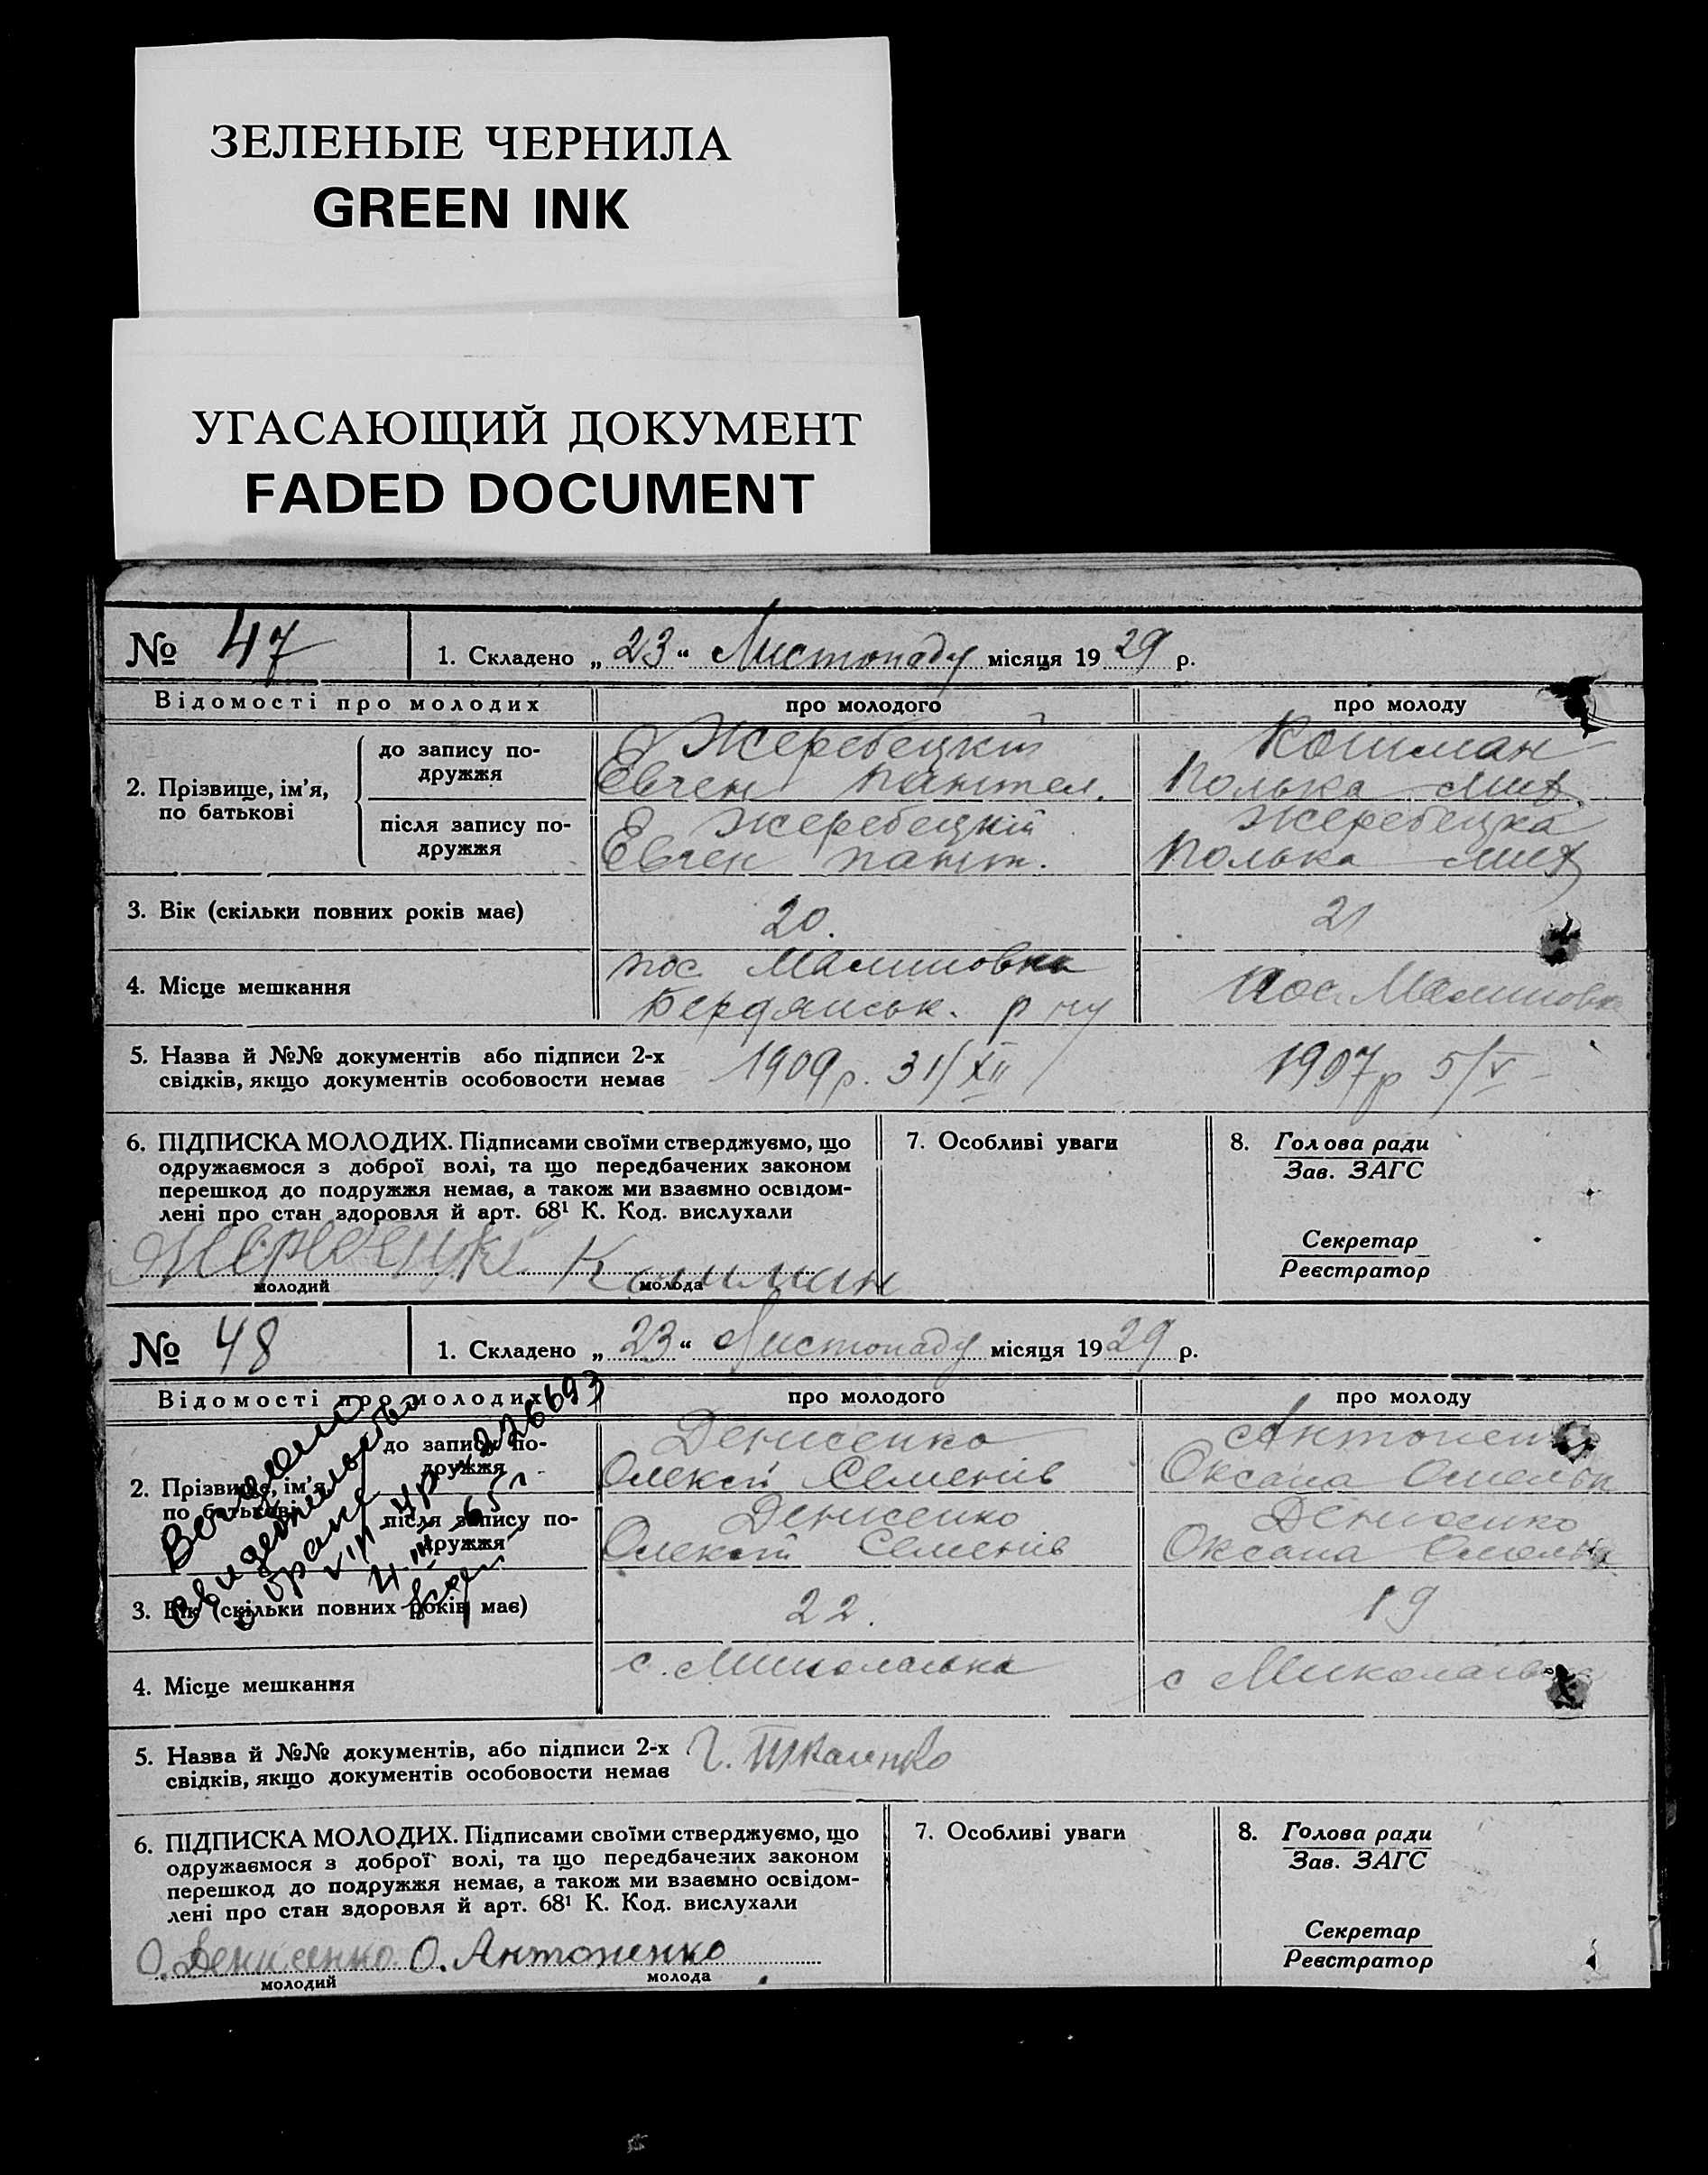 ЗЕЛЕНЫЕ ЧЕРНИЛА
GREEN INK
УГАСАЮЩИЙ ДОКУМЕНТ
FADED DOCUMENT
№ 47 1. Складено „ 23 “ Листопаду місяця 1929 р.
Відомості про молодих про молодого про молоду
2. Прізвище, ім'я, по батькові
до запису подружжя
Жеребецкій Кошман
Евген пантел. Полька
після запису подружжя
Жеребецкій Жеребецка
Евген пант. Полька
3. Вік (скільки повних років має) 20. 21
4. Місце мешкання
пос. Малиновка пос. Малиновка
Бердянськ. р ну
5. Назва й №№ документів або підписи 2-х
свідків, якщо документів особовости немає
1909 р. 31/XII 1907 р 5/V
6. ПІДПИСКА МОЛОДИХ. Підписами своїми стверджуємо, що
одружаємося з доброї волі, та що передбачених законом
перешкод до подружжя немає, а також ми взаємно освідом-
лені про стан здоровля й арт. 68¹ К. Код. вислухали
Кошман
молодий молода
7. Особливі уваги
8. Голова ради
Зав. ЗАГС
Секретар
Реєстратор
№ 48 1. Складено „ 23 “ Листопаду місяця 1929 р.
Відомості про молодих про молодого про молоду
2. Прізвище, ім'я, по батькові
до запису подружжя
Денисенко Антоненко
Олексій Семенів Оксана Омельк
після запису подружжя
Денисенко Денисенко
Олексій Семенів Оксана
свидетельство
о браке
3. Вік (скільки повних років має) 22. 19
4. Місце мешкання с. Миколаївка с Миколаївка
5. Назва й №№ документів, або підписи 2-х
свідків, якщо документів особовости немає
6. ПІДПИСКА МОЛОДИХ. Підписами своїми стверджуємо, що
одружаємося з доброї волі, та що передбачених законом
перешкод до подружжя немає, а також ми взаємно освідом-
лені про стан здоровля й арт. 68¹ К. Код. вислухали
О. Денисенко О. Антоненко
молодий молода
7. Особливі уваги
8. Голова ради
Зав. ЗАГС
Секретар
Реєстратор